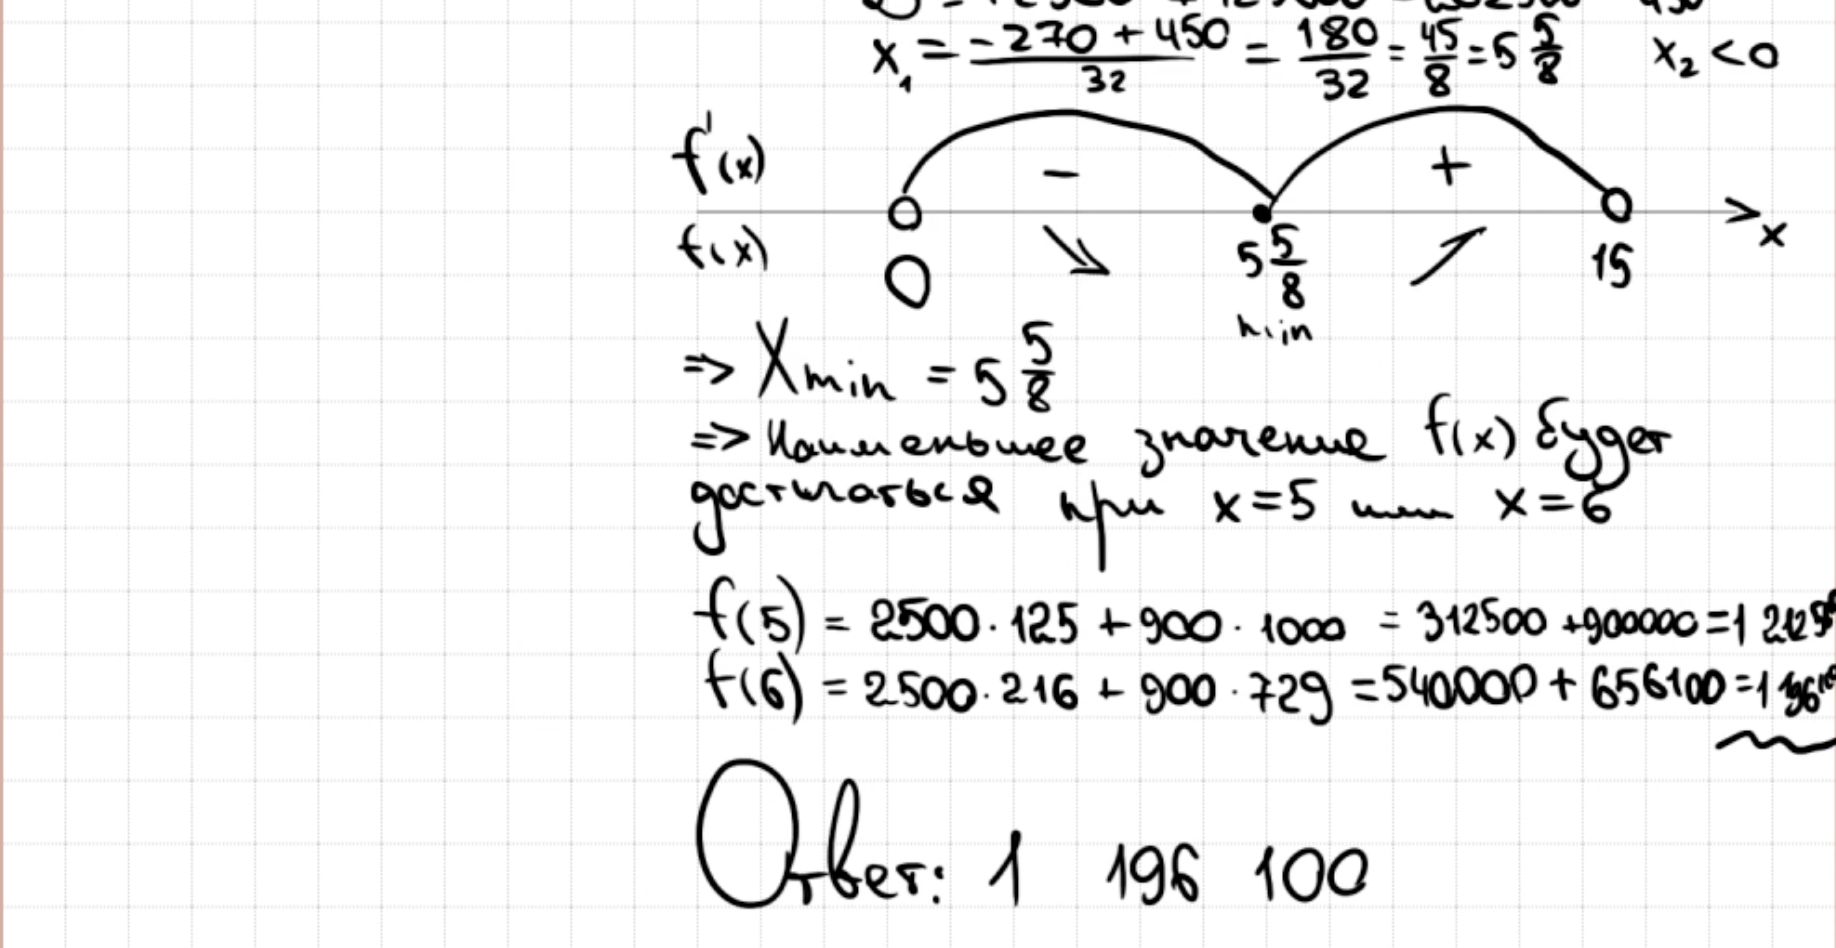 x₁ = (-270 + 450)/32 = 180/32 = 45/8 = 5 5/8   x₂ < 0
f'(x)   -   +
f(x)   0   5 5/8   15   x
min
=> Xmin = 5 5/8
=> Наименьшее значение f(x) будет
достигаться при x=5 или x=6
f(5) = 2500·125 + 900·1000 = 312500 + 900000 = 1 212
f(6) = 2500·216 + 900·729 = 540000 + 656100 = 1 196
Ответ: 1 196 100